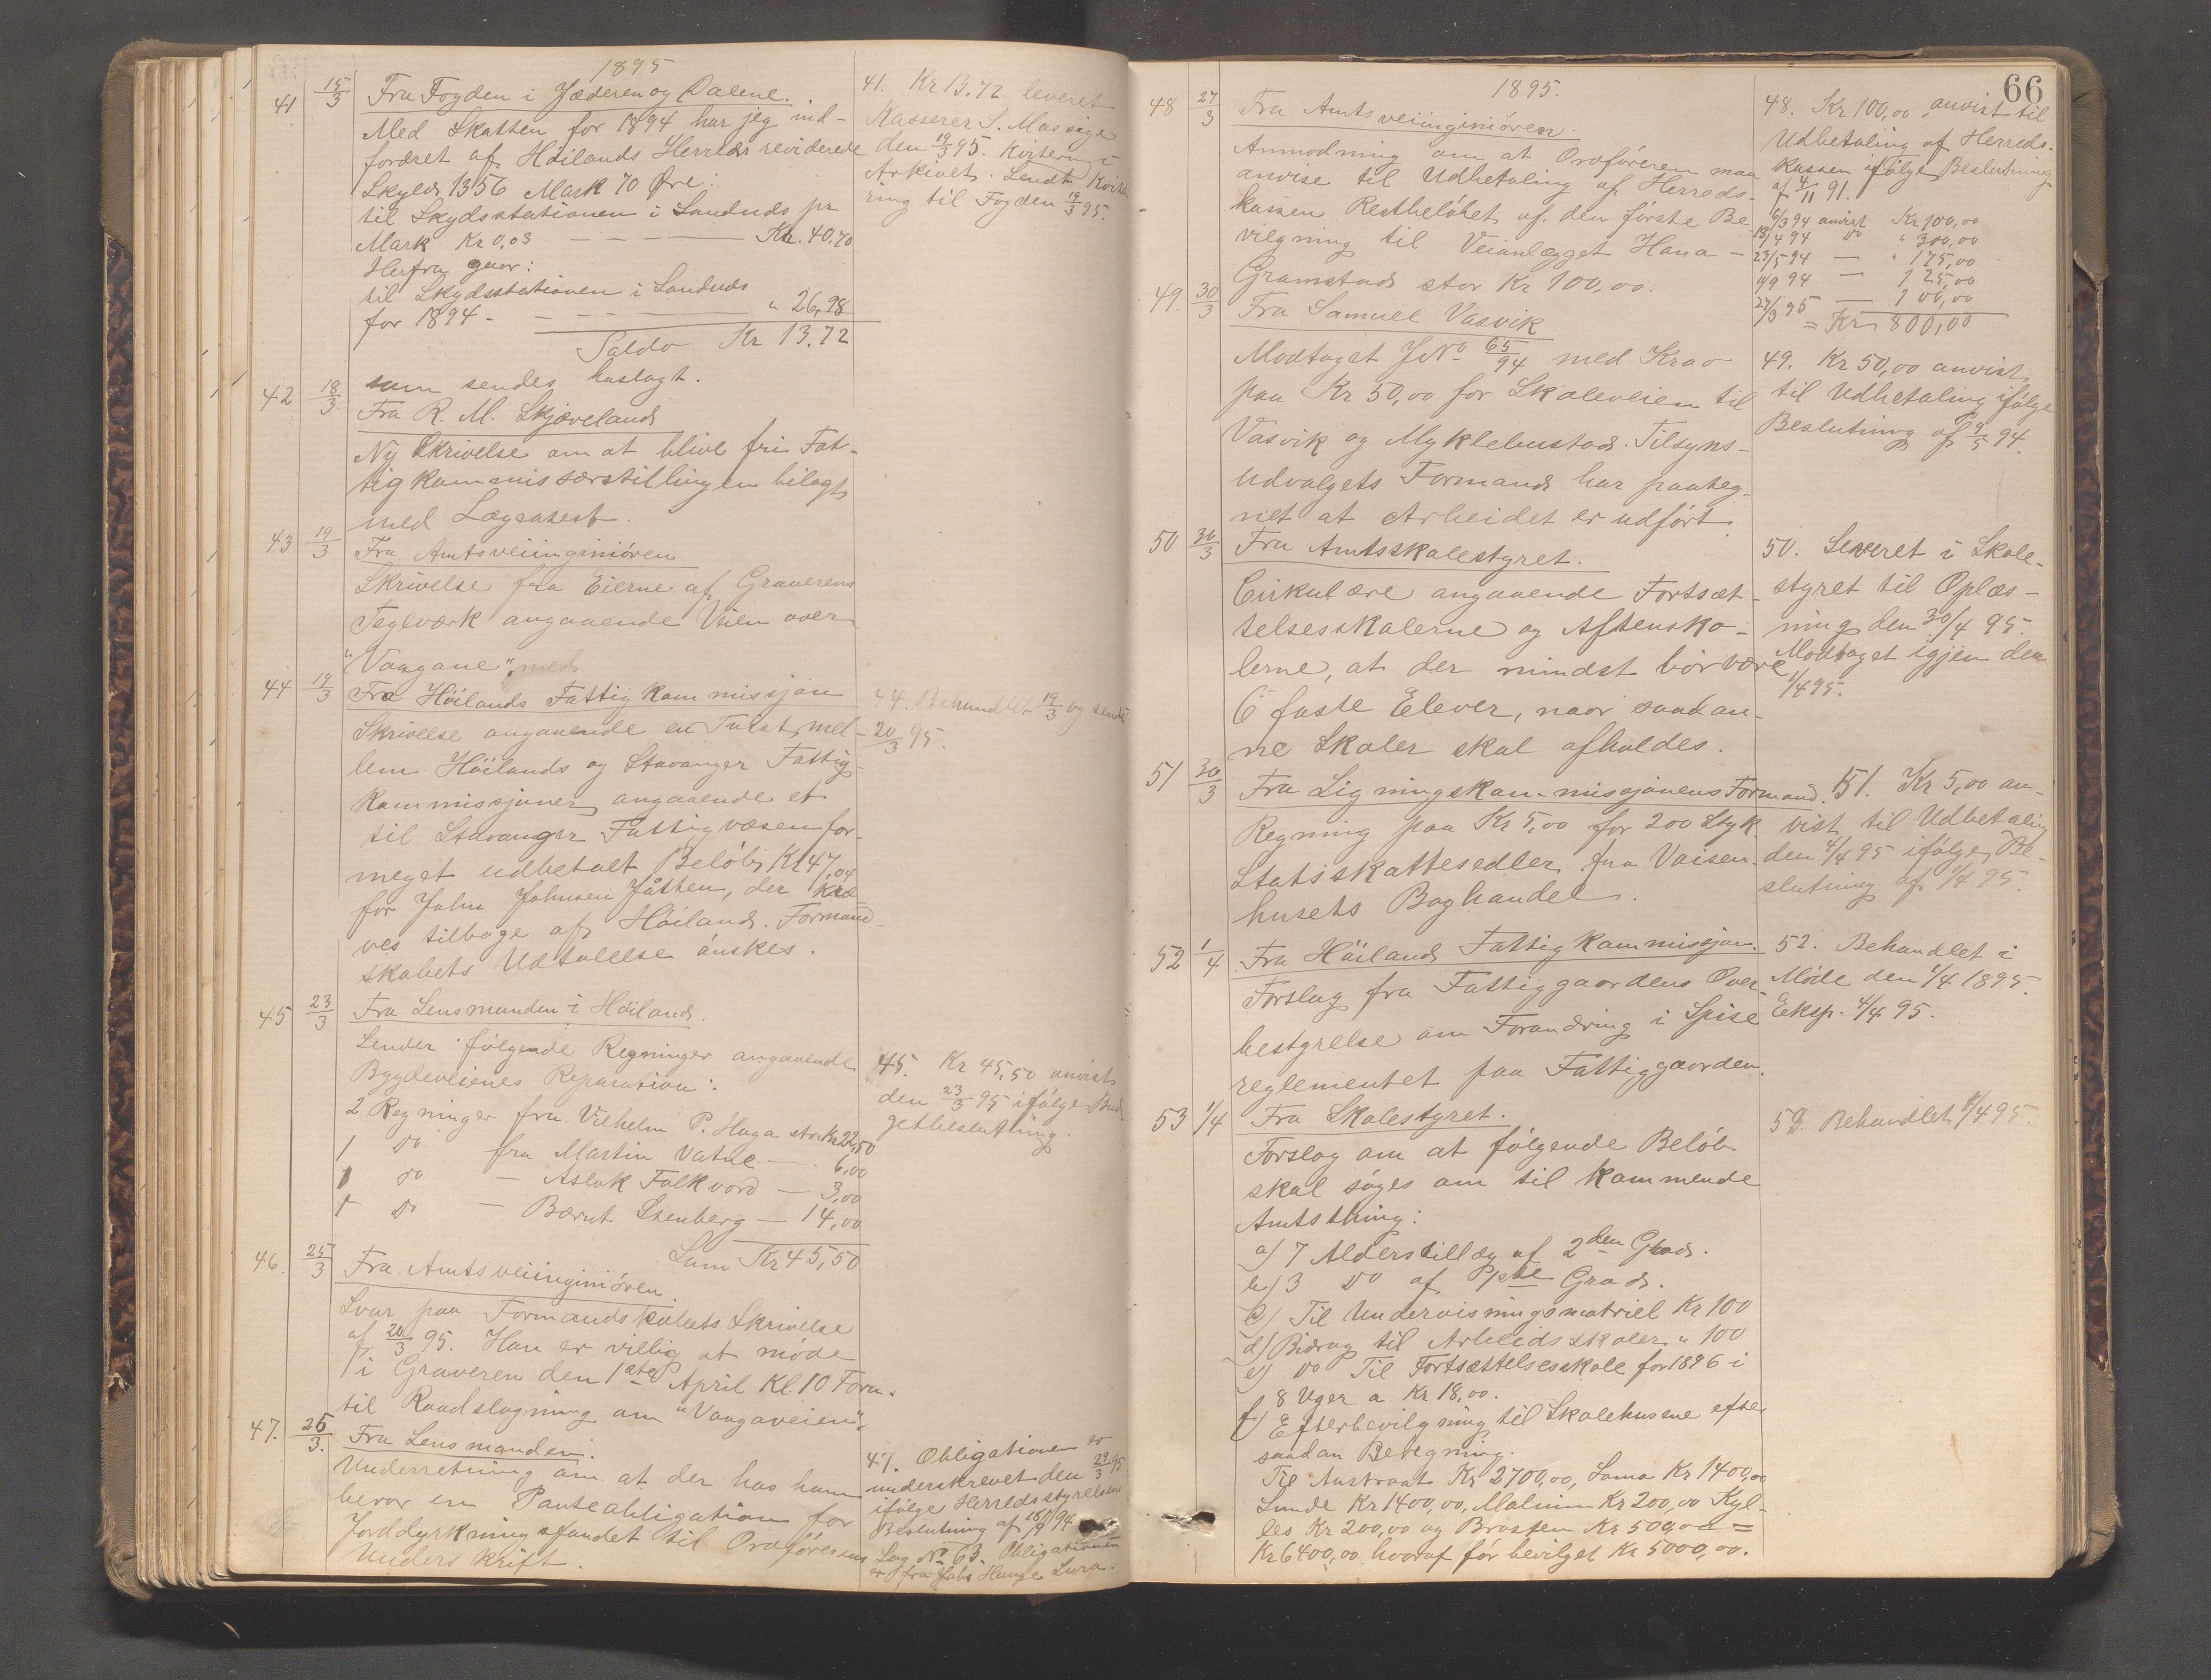 1895
41 15/3 Fra Fogden i Jæderen og Dalene.
Med Skatten for 1894 har jeg ind-
fordret af Höilands Herreds reviderede
Skyld 1356 Mark 70 Øre:
til Skydsstationen i Sandnæs pr
Mark Kr 0,03 — — — — Kr. 40,70
Herfra gaar:
til Skydsstationen i Sandnæs
for 1894 - — — — — " 26,98
Saldo Kr 13,72
som sendes, hoslagt.
42 18/3 Fra R. M. Skjæveland
Ny Skrivelse om at blive fri Fat-
tigkommissærstillingen bilagt
med Lægeatest.
43 19/3 Fra Amtsveiinginiören
Skrivelse fra Eierne af Graverens
Teglværk angaaende Veien over
"Vaagane" med
44 19/3 Fra Höilands Fattigkommissjon
Skrivelse angaaende en Tvist mel-
lem Höilands og Stavanger Fattig-
kommissjoner angaaende et
til Stavanger Fattigvæsen for-
meget udbetalt Belöb, Kr 47,04
for John Johnsen Jåtten, der kræ-
ves tilbage af Höiland. Formand-
skabets Udtalelse önskes.
45 23/3 Fra Lensmanden i Höiland.
Sender fölgende Regninger angaaende
Bygdeveienes Reparation:
2 Regninger fra Vilhelm P. Huga stor Kr 22,50
1 Do fra Martin Vatne — 6,00
1 Do — Aslak Folkvord — 3,00
1 Do — Bærnt Stenberg — 14,00
Sum Kr 45,50
46. 25/3 Fra Amtsveiinginiören.
Svar paa Formandskabets Skrivelse
af 20/3 95. Han er villig at möde
i Graveren den 1ste April Kl. 10 Form.
til Raadslagning om "Vaagaveien".
47. 25/3. Fra Lensmanden.
Underretning om at der hos ham
beror en Panteobligation for
Jorddyrkningsfondet til Ordförerens
Underskrift.
41. Kr 13,72 leveret
Kasserer S. Massige
den 19/3 95. Kvitering i
Arkivet. Sendt Kvitte
ring til Fogden 19/3 95.
44. Behandlet 19/3 og sendt
20/3 95.
45. Kr 45,50 anvist
den 23/3 95 ifölge Bud-
getbeslutning.
47. Obligationen er
underskrevet den 29/3 95
ifölge Herredsstyrelsens
Beslutning af 94
Sag No 63. Obligationen
er fra Jobs Hauge Lura.
66
1895.
48 27/3 Fra Amtsveiinginiören.
Anmodning om at Ordföreren maa
anvise til Udbetaling af Herreds-
kassen Restbelöbet af den förste Be-
vilgning til Veianlægget Hana —
Gramstad stor Kr 100,00.
49. 30/3 Fra Samuel Vasvik
Modtaget J No 65/94 med Krav
paa Kr 50,00 for Skoleveien til
Vasvik og Myklebustad. Tilsyns-
udvalgets Formand har paateg-
net at Arbeidet er udfört.
50 30/3 Fra Amtsskolestyret.
Cirkulære angaaende Fortsæt-
telsesskolerne og Aftensko-
lerne, at der mindst bör være
6 faste Elever, naar saadan-
ne Skoler skal afholdes.
51 30/3 Fra Ligningskommissjonens Formand.
Regning paa Kr 5,00 for 200 Styk.
Statsskattesedler fra Vaisen-
husets Boghandel.
52 1/4 Fra Höilands Fattigkommissjon.
Forslag fra Fattiggaardens Over-
bestyrelse om Forandring i Spise
reglementet paa Fattiggaarden.
53 1/4 Fra Skolestyret.
Forslag om at fölgende Belöb
skal söges om til kommende
Amtsthing:
a) 7 Alderstillæg af 2den Grad.
b) 3 Do af Grad.
c) Til Undervisningsmatriel Kr 100
d) Bidrag til Arbeidsskoler " 100
e) Do Til Fortsættelsesskole for 1896 i
8 Uger a Kr 18,00.
f) Efterbevilgning til Skolehusene efter
saadan Beregning.
Til Austraat Kr 2700,00, Soma Kr 1400,00
Lunde Kr 1400,00, Malmim Kr 200,00 Kyl-
les Kr 200,00 og Brasten Kr 500,00 =
Kr 6400,00 hvoraf för bevilget Kr 5000,00.
48. Kr 100,00 anvist til
Udbetaling af Herreds-
kassen ifölge Beslutning
af 4/11 91.
6/3 94 anvist Kr 100,00
18/4 94 Do " 300,00
23/5 94 — " 175,00
11/9 94 — 125,00
27/3 95 — 100,00
= Kr 800,00
49. Kr 50,00 anvist
til Udbetaling ifölge
Beslutning af 9/5 94.
50. Leveret i Skole-
styret til Oplæs-
ning den 30/4 95.
Modtaget igjen den
1/4 95.
51. Kr 5,00 an-
vist til Udbetaling
den 4/4 95 ifölge Be-
slutning af 1/4 95.
52. Behandlet i
Möde den 1/4 1895.
Eksp. 4/4 95.
53. Behandlet 1/4 95.